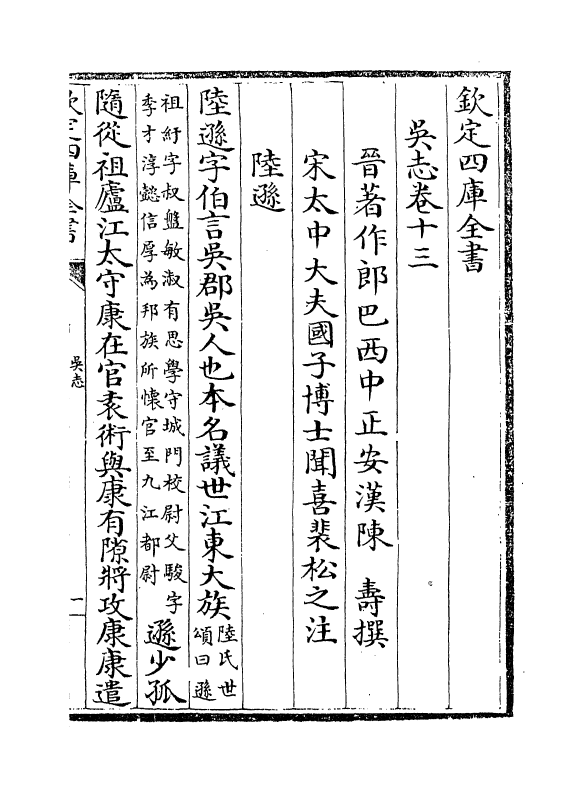 欽定四庫全書
吳志卷十三
晉著作郎巴西中正安漢陳　壽撰
宋太中大夫國子博士聞喜裴松之注
陸遜
陸遜字伯言吳郡吳人也本名議世江東大族陸氏世頌曰遜
祖紆字叔盤敏淑有思學守城門校尉父駿字季才淳懿信厚為邦族所懷官至九江都尉遜少孤
隨從祖廬江太守康在官袁術與康有隙將攻康康遣
欽定四庫全書
吳志
一